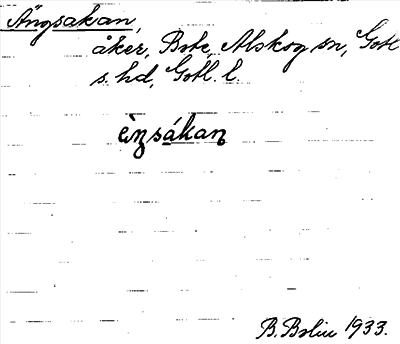 Ängsakan,
åker, Bote, Alskog sn, Gotl
s. hd, Gotl. l.
è̩ŋsákan
B. Bolin 1933.